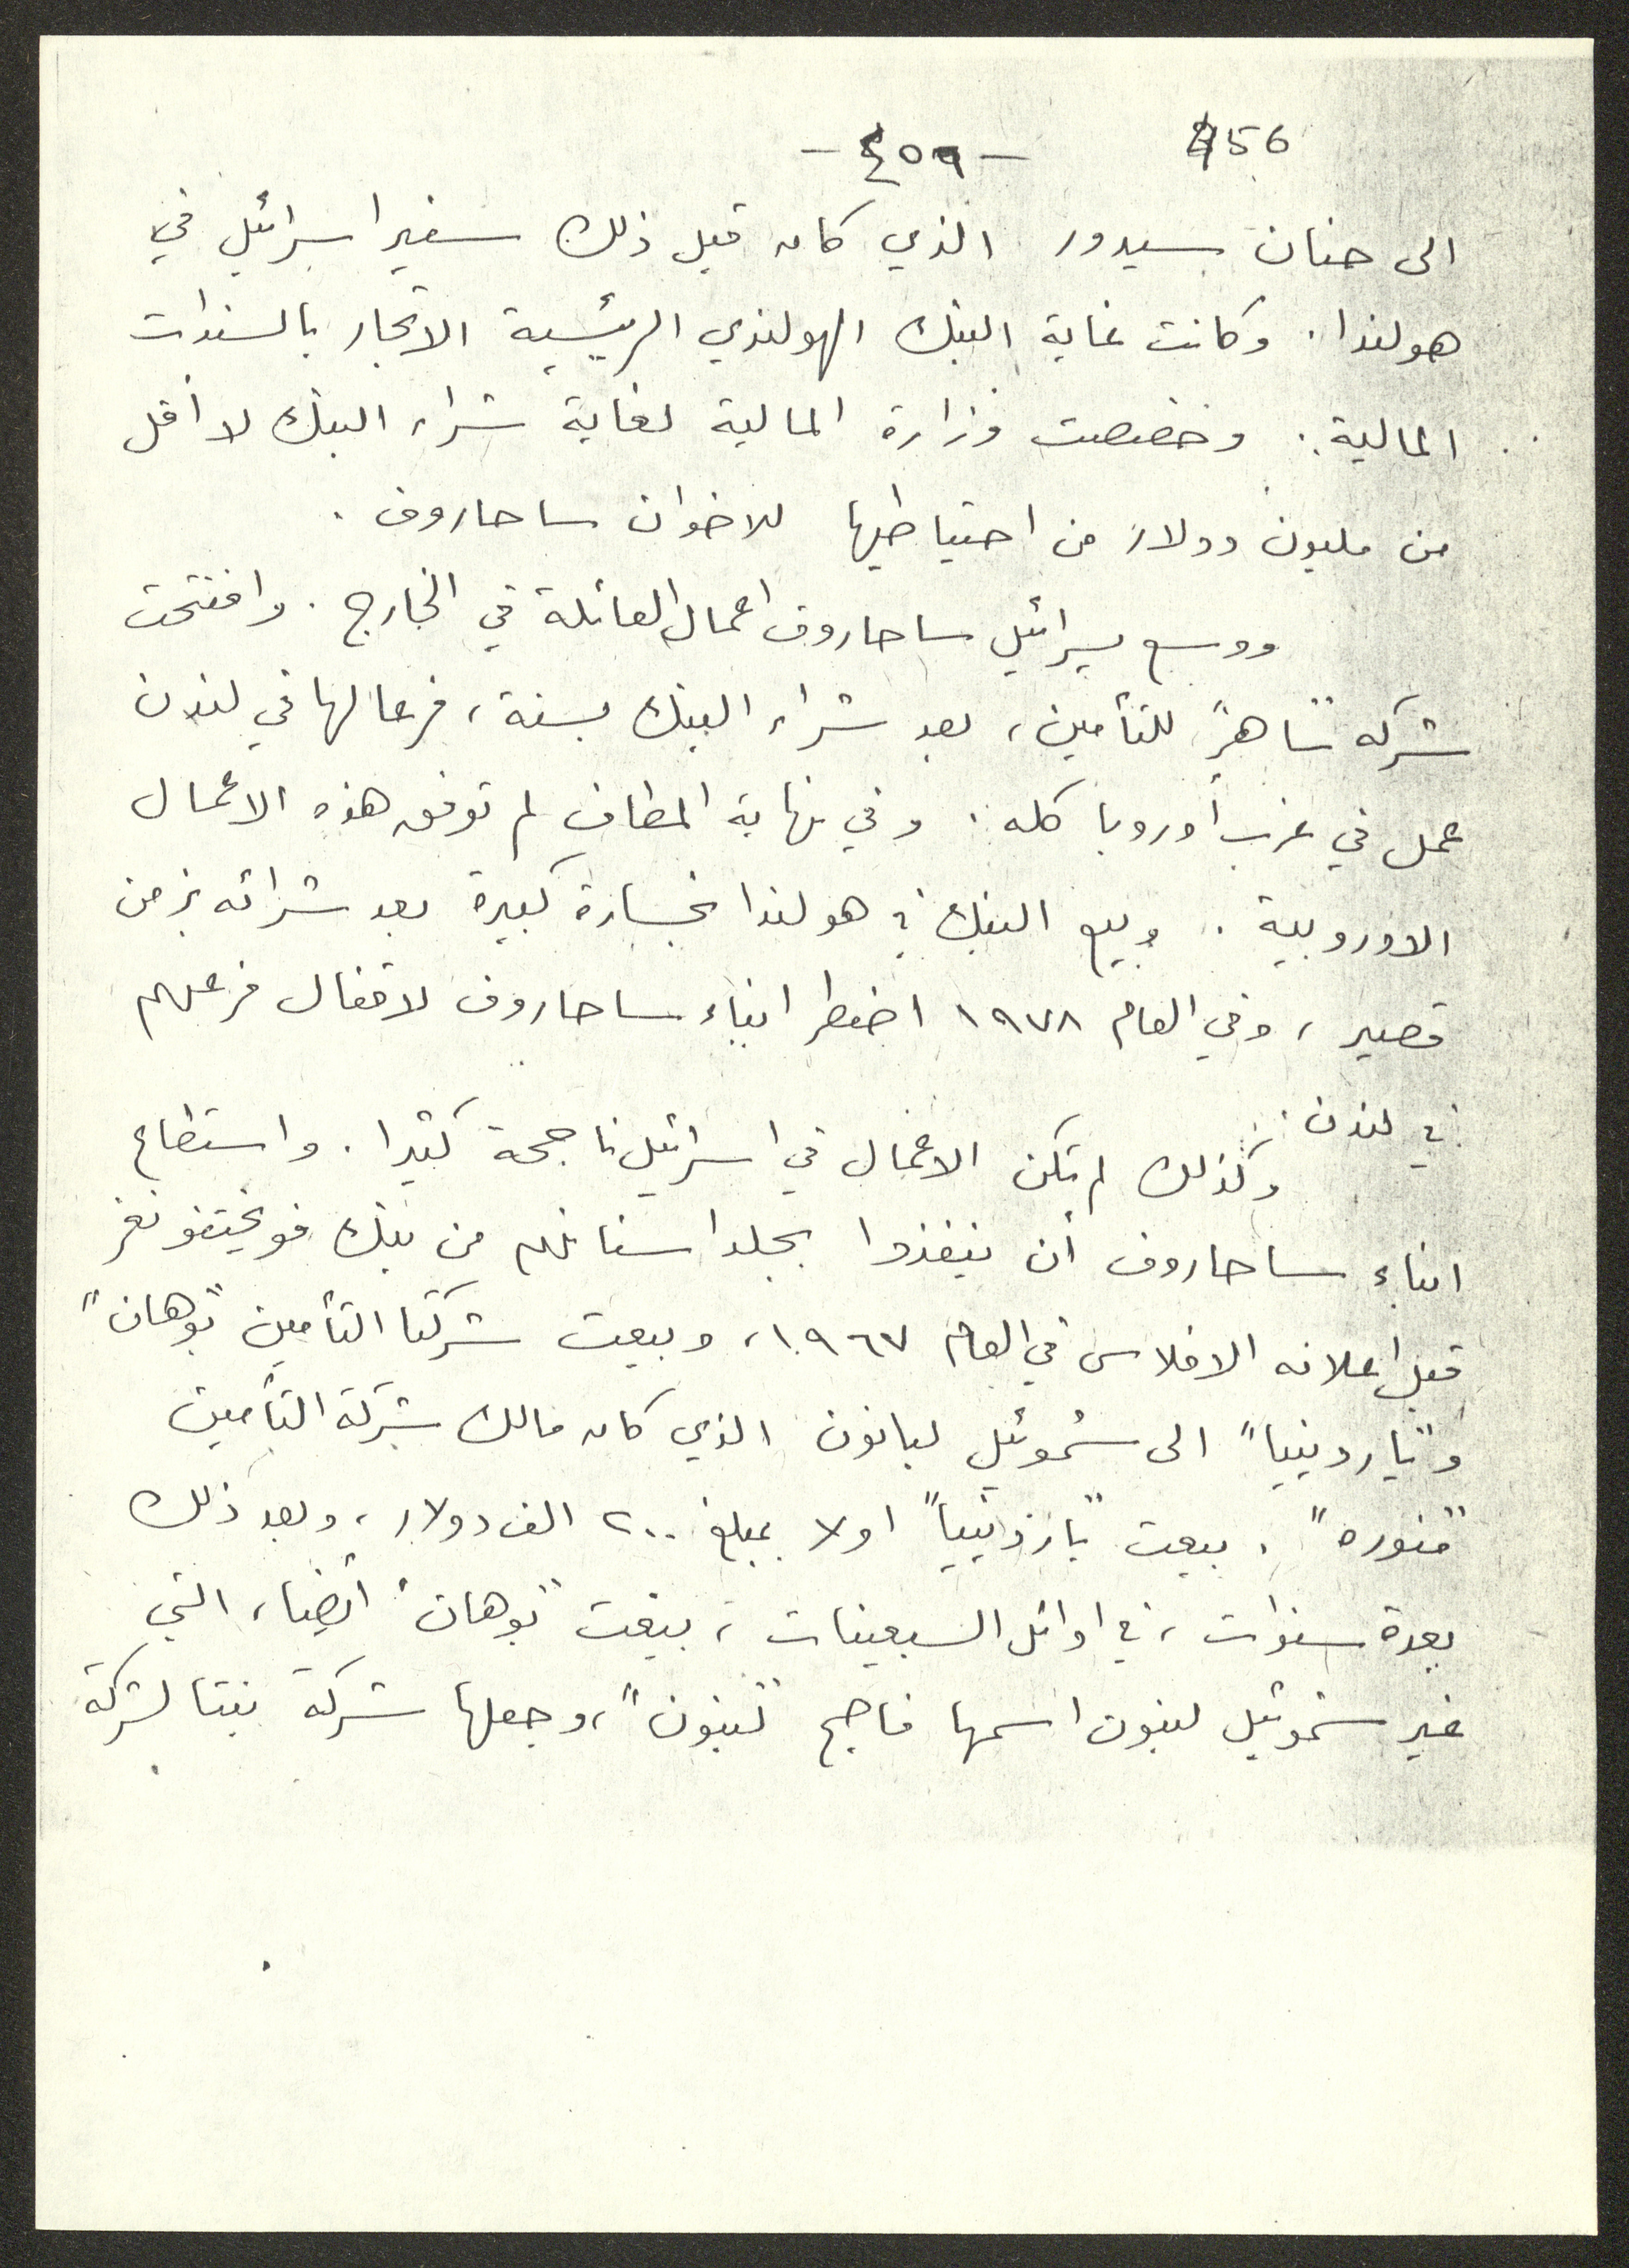 -٤٥٩- 156
الى حنان سيدور الذي كان قبل ذلك سفير اسرائيل في
هولندا. وكانت غاية البنك الهولندي الرئيسية الاتجار بالسندات
المالية. وخصصت وزارة المالية لغاية شراء البنك لا أقل
من مليون دولار من احتياطيها للاخوان ساحاروف.
ووسع يسرائيل ساحاروف اعمال العائلة في الخارج. وافتتحت
شركة "ساهر" للتأمين، بعد شراء البنك بسنة، فرعا لها في لندن
عمل في غرب أوروبا كله. وفي نهاية المطاف لم توفق هذه الاعمال
الاوروبية. وبيع البنك في هولندا بخسارة كبيرة بعد شرائه بزمن
قصير، وفي العام ١٩٧٨ اضطر ابناء ساحاروف لاقفال فرعهم
في لندن.
وكذلك لم تكن الاعمال في اسرائيل ناجحة كثيرا. واستطاع
ابناء ساحاروف أن ينفذوا بجلد اسنانهم من بنك فويختفنغر
قبل اعلانه الافلاس في العام ١٩٦٧، وبيعت شركتا التأمين "بوهان"
و"ياردينيا" الى شموئيل لبانون الذي كان مالك شركة التأمين
"منوره". بيعت "ياردينيا" اولا بمبلغ ٢٠٠ الف دولار، وبعد ذلك
بعدة سنوات، في اوائل السبعينات، بيعت "بوهان" أيضا، التي
غير شموئيل لبنون اسمها فاصبح "لبنون"، وجعلها شركة بنتا لشركة